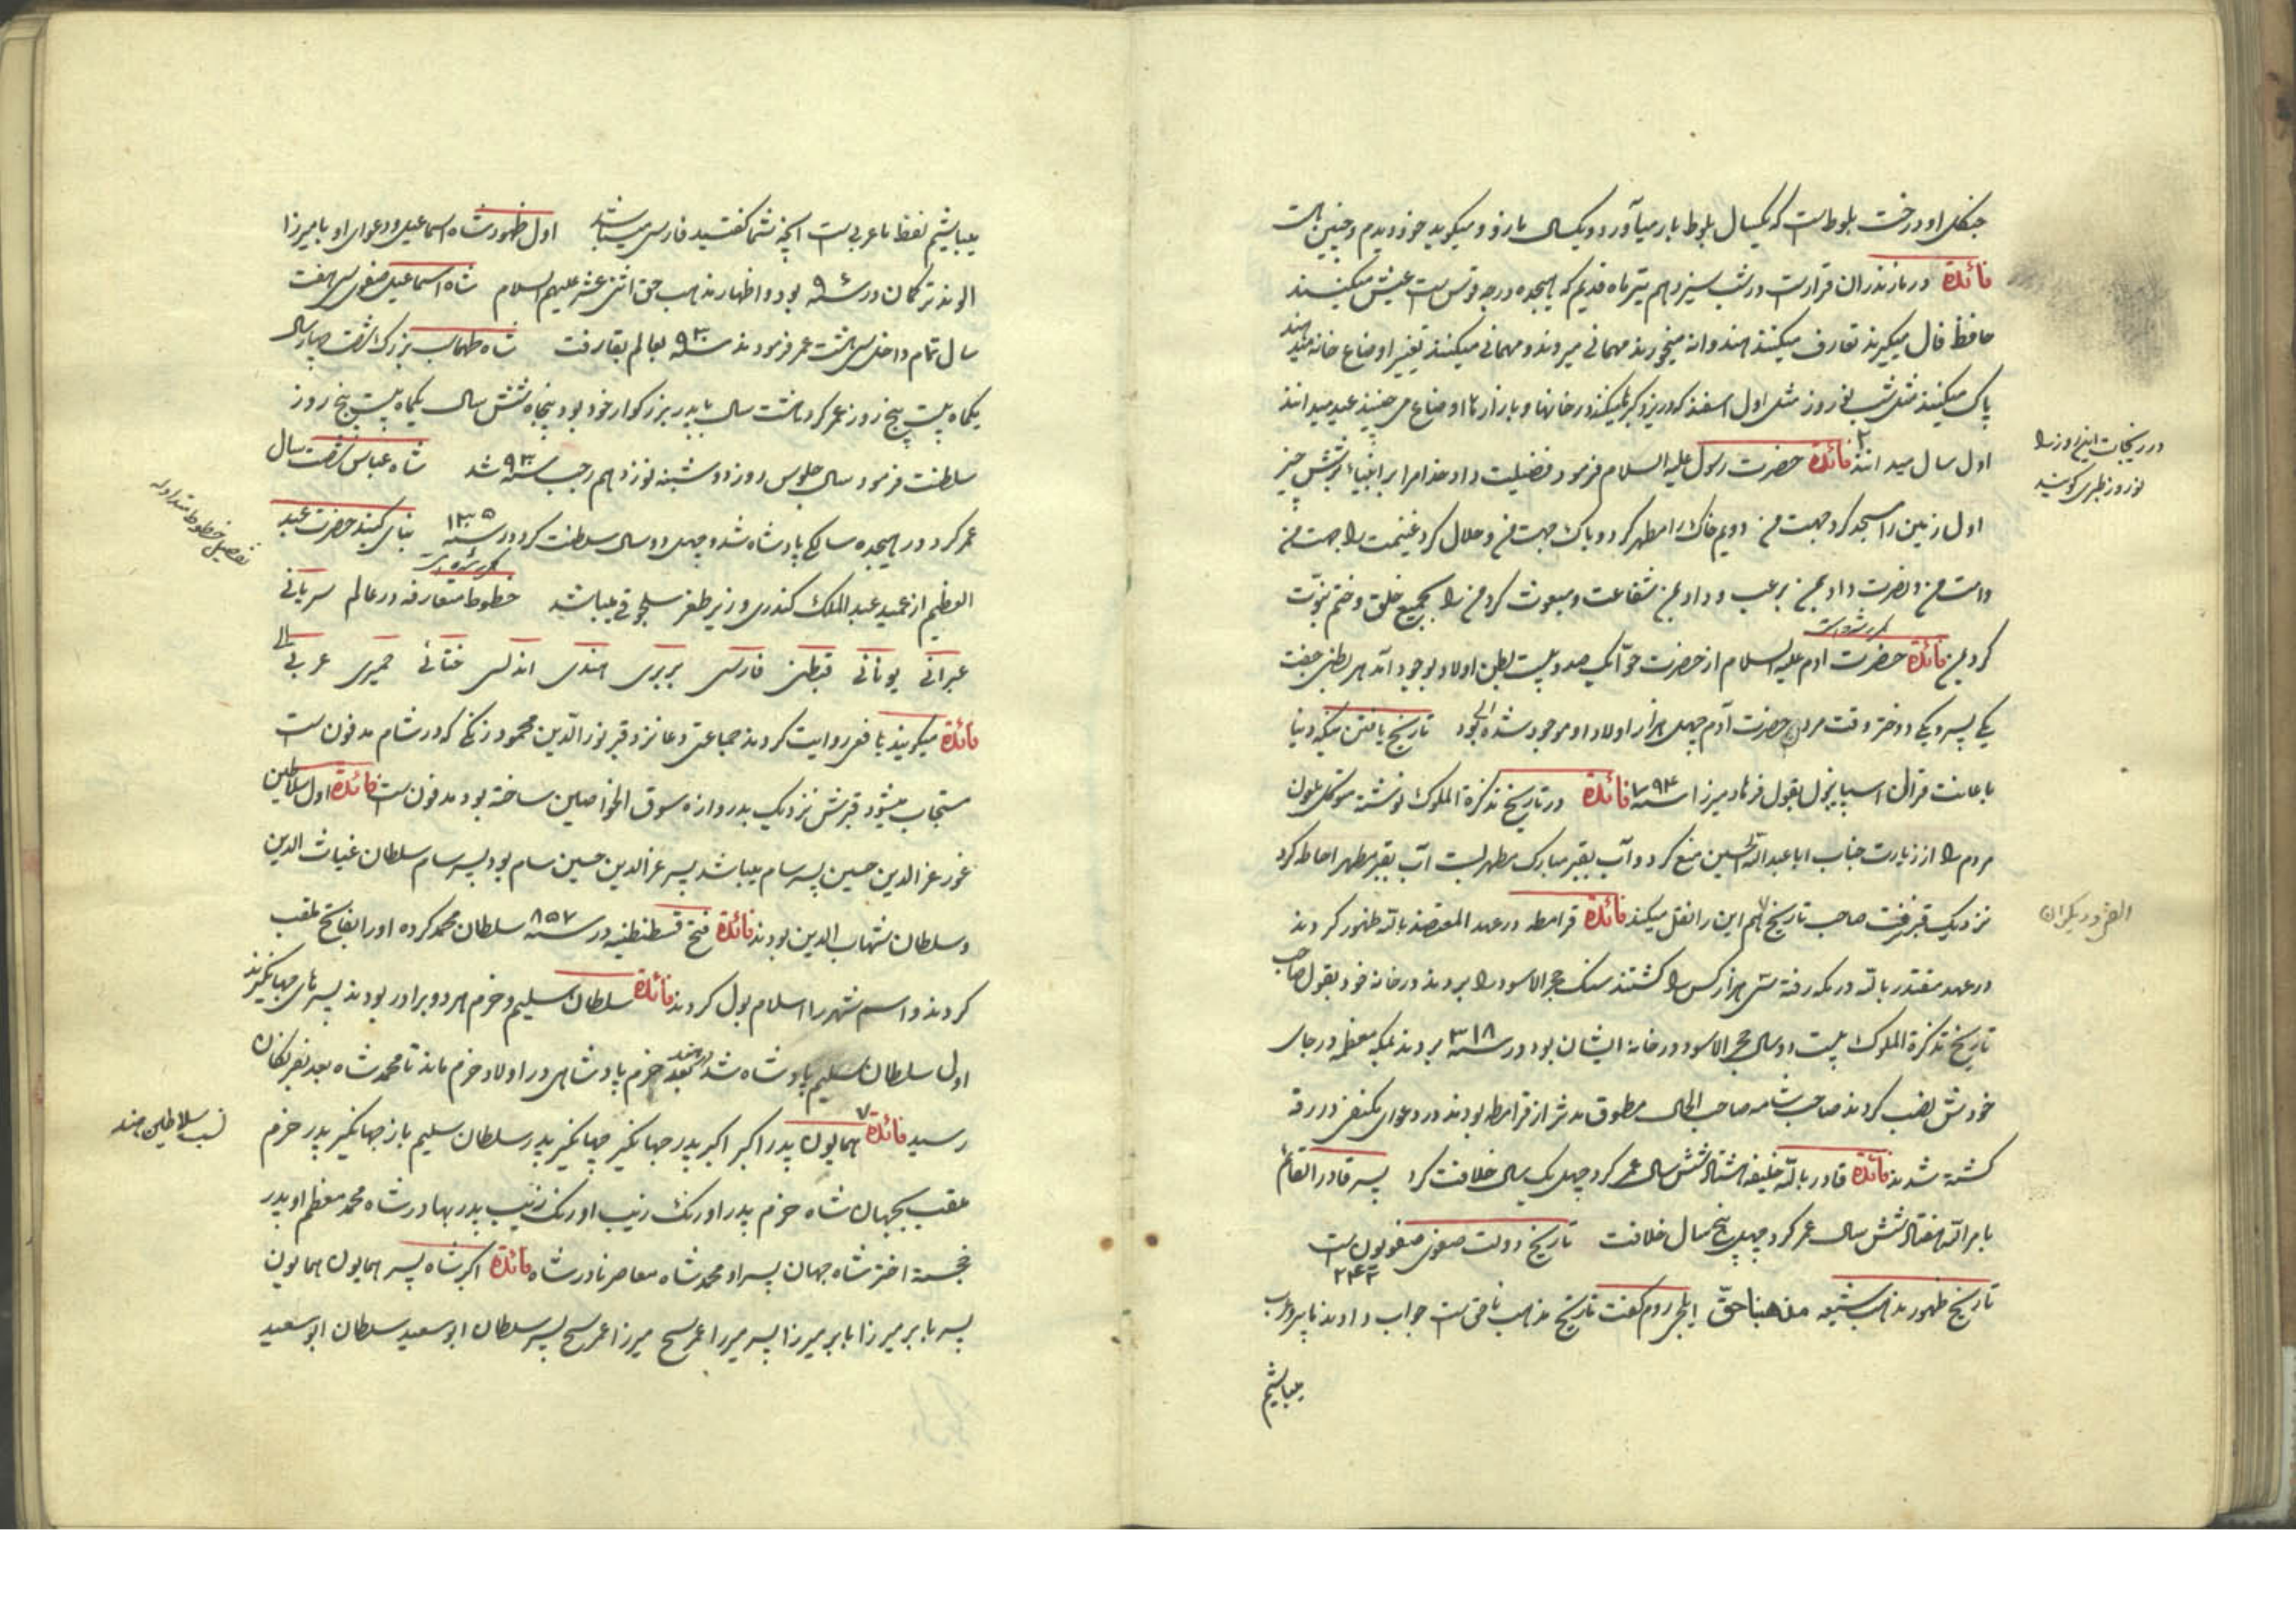 جنگل او درخت بلوط است که یکسال بلوط بار میآورد و یکسال مازو و میگوید خود دیدم و چنین است
فائدة در مازندران قرارست در شب سیزدهم تیر ماه قدیم که هیجده درجه قوس است عیش میکنند
حافظ فال میگیرند تعارف میکنند هندوانه میخورند مهمانی میروند و مهمانی میکنند تغییر اوضاع خانه میدهند
پاک میکنند مثل شب نوروز مثل اول اسفند که در یزد و میکنند در خانها و بازارها اوضاع می چینند عید میدانند
اول سال میدانند فائدة حضرت رسول علیه السلام فرمود فضیلت داد خدا مرا بر انبیاء بشش چیز
در ریجات این روز را
نوروز طبری گویند
اول زمین را مسجد کرد جهت من دویم خاک را مطهر کرد و پاک جهت من و حلال کرد غنیمت را جهت من
و امت من و نصرت داد بمن برعب و داد بمن شفاعت و مبعوث کرد من را بجمیع خلق و ختم نبوّت
مکرر شده است
کرد بمن فائدة حضرت ادم علیه السلام از حضرت حوّا یک صد و بیست بطن اولاد بوجود آمد هر بطنی جفت
یکی پسر و یکی دختر وقت مردن حضرت آدم چهل هزار اولاد او موجود شده بود تاریخ یافتن ینگه دنیا
باعانت قرال اسپانیول بقول فرهاد میرزا سنه فائدة در تاریخ تذکرة الملوک نوشته متوکل ملعون
مردم را از زیارت جناب ابا عبدالله الحسین منع کرد و آب بقبر مبارک مطهر بست آب بقبر مطهر احاطه کرد
نزدیک قبر نرفت صاحب تاریخ هم این را نقل میکند فائدة قرامطه در عهد المعتضد بالله ظهور کردند
در عهد مقتدر بالله در مکه رفته سی هزار کس را کشتند سنک حجر الاسود را بردند در خانه خود بقول صاحب
تاریخ تذکرة الملوک بیست و دو سال حجر الاسود در خانه ایشان بود در سنه ۳۱۸ بردند بمکه معظمه در جای
خودش نصب کردند صاحب شامه صاحب الخال مطوق مدثر از قرامطه بودند در دعوای مکتفی در رقه
کشته شدند فائدة قادر بالله خلیفه هشتاد شش سال عمر کرد چهل یک سال خلافت کرد پسر قادر القائم
بامر الله هفتاد شش سال عمر کرد چهل پنجسال خلافت تاریخ دولت صفوی صفویون است
۲۴۲
تاریخ ظهور مذهب شیعه مذهبنا حقّ ایلچی روم گفت تاریخ مذهب ناحق است جواب دادند ما پیرو عرب
میباشیم
میباشیم لفظ ما عربی است آنچه شما گفتید فارسی میباشد اول ظهور شاه اسماعیل و دعوای او با میرزا
الوند ترکمان در سنه بود و اظهار مذهب حق اثنی عشر علیهم السلام شاه اسماعیل صفوی سی هفت
سال تمام داخل سی هشت عمر فرمودند سنه ۹۳۰ بعالم بقا رفت شاه طهماسب بزرگ شصت چهار سال
یکماه بیست پنج روز عمر کرد هشت سال با پدر بزرگوار خود بود پنجاه شش سال یکماه بیست پنج روز
سلطنت فرمود سال جلوس روز دوشنبه نوزدهم رجب سنه ۹۳۰ شد شاه عباس شصت سال
عمر کرد در هیجده سالگی پادشاه شد و چهل دو سال سلطنت کرد در سنه بنای گنبد حضرت عبد
مکرر شده است
تفصیل خطوط متداوله
العظیم از عمید عبد الملک کندری وزیر طغرل سلجوقی میباشد خطوط متعارفه در عالم سریانی
عبرانی یونانی قبطی فارسی بربری هندی اندلس ختائی حمیری عربی
فائدة میگویند یافعی روایت کردند جماعتی دعا نزد قبر نورالدّین محمود زنگی که در شام مدفون است
مستجاب میشود قبرش نزدیک بدروازه سوق الخواصین ساخته بود مدفون است فائدة اول سلاطین
غور عز الدین حسین پسر سام میباشد پسر عز الدین حسین سام بود پسر سام سلطان غیاث الدین
و سلطان شهاب الدین بودند فائدة فتح قسطنطنیه در سنه ۸۵۷ سلطان محمد کرده او را بفاتح ملقب
کردند و اسم شهر را اسلامبول کردند فائدة سلطان سلیم و خرم هر دو برادر بودند پسرهای جهانگیرند
اول سلطان سلیم پادشاه شد در هند بعد خرم پادشاهی در اولاد خرم ماند تا محمد شاه بعد بفرنگان
رسید فائدة همایون پدر اکبر اکبر پدر جهانگیر جهانگیر پدر سلطان سلیم باز جهانگیر پدر خرم
نسب سلاطین هند
ملقب بجهان شاه خرم پدر اورنگ زیب اورنگ زیب پدر بهادر شاه محمد معظم او پدر
خجسته اختر شاه جهان پسر او محمد شاه معاصر نادر شاه فائدة اکبر شاه پسر همایون همایون
پسر بابر میرزا بابر میرزا پسر میرزا عمر شیخ میرزا عمر شیخ پسر سلطان ابو سعید سلطان ابو سعید